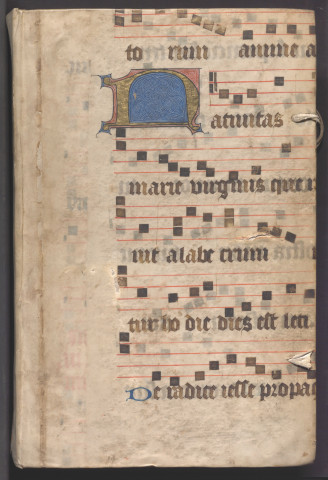 to rum anime a
Natiuitas
marie virginis que n
uit a labe crim
tur ho die dies est leti
De radice iesse propag